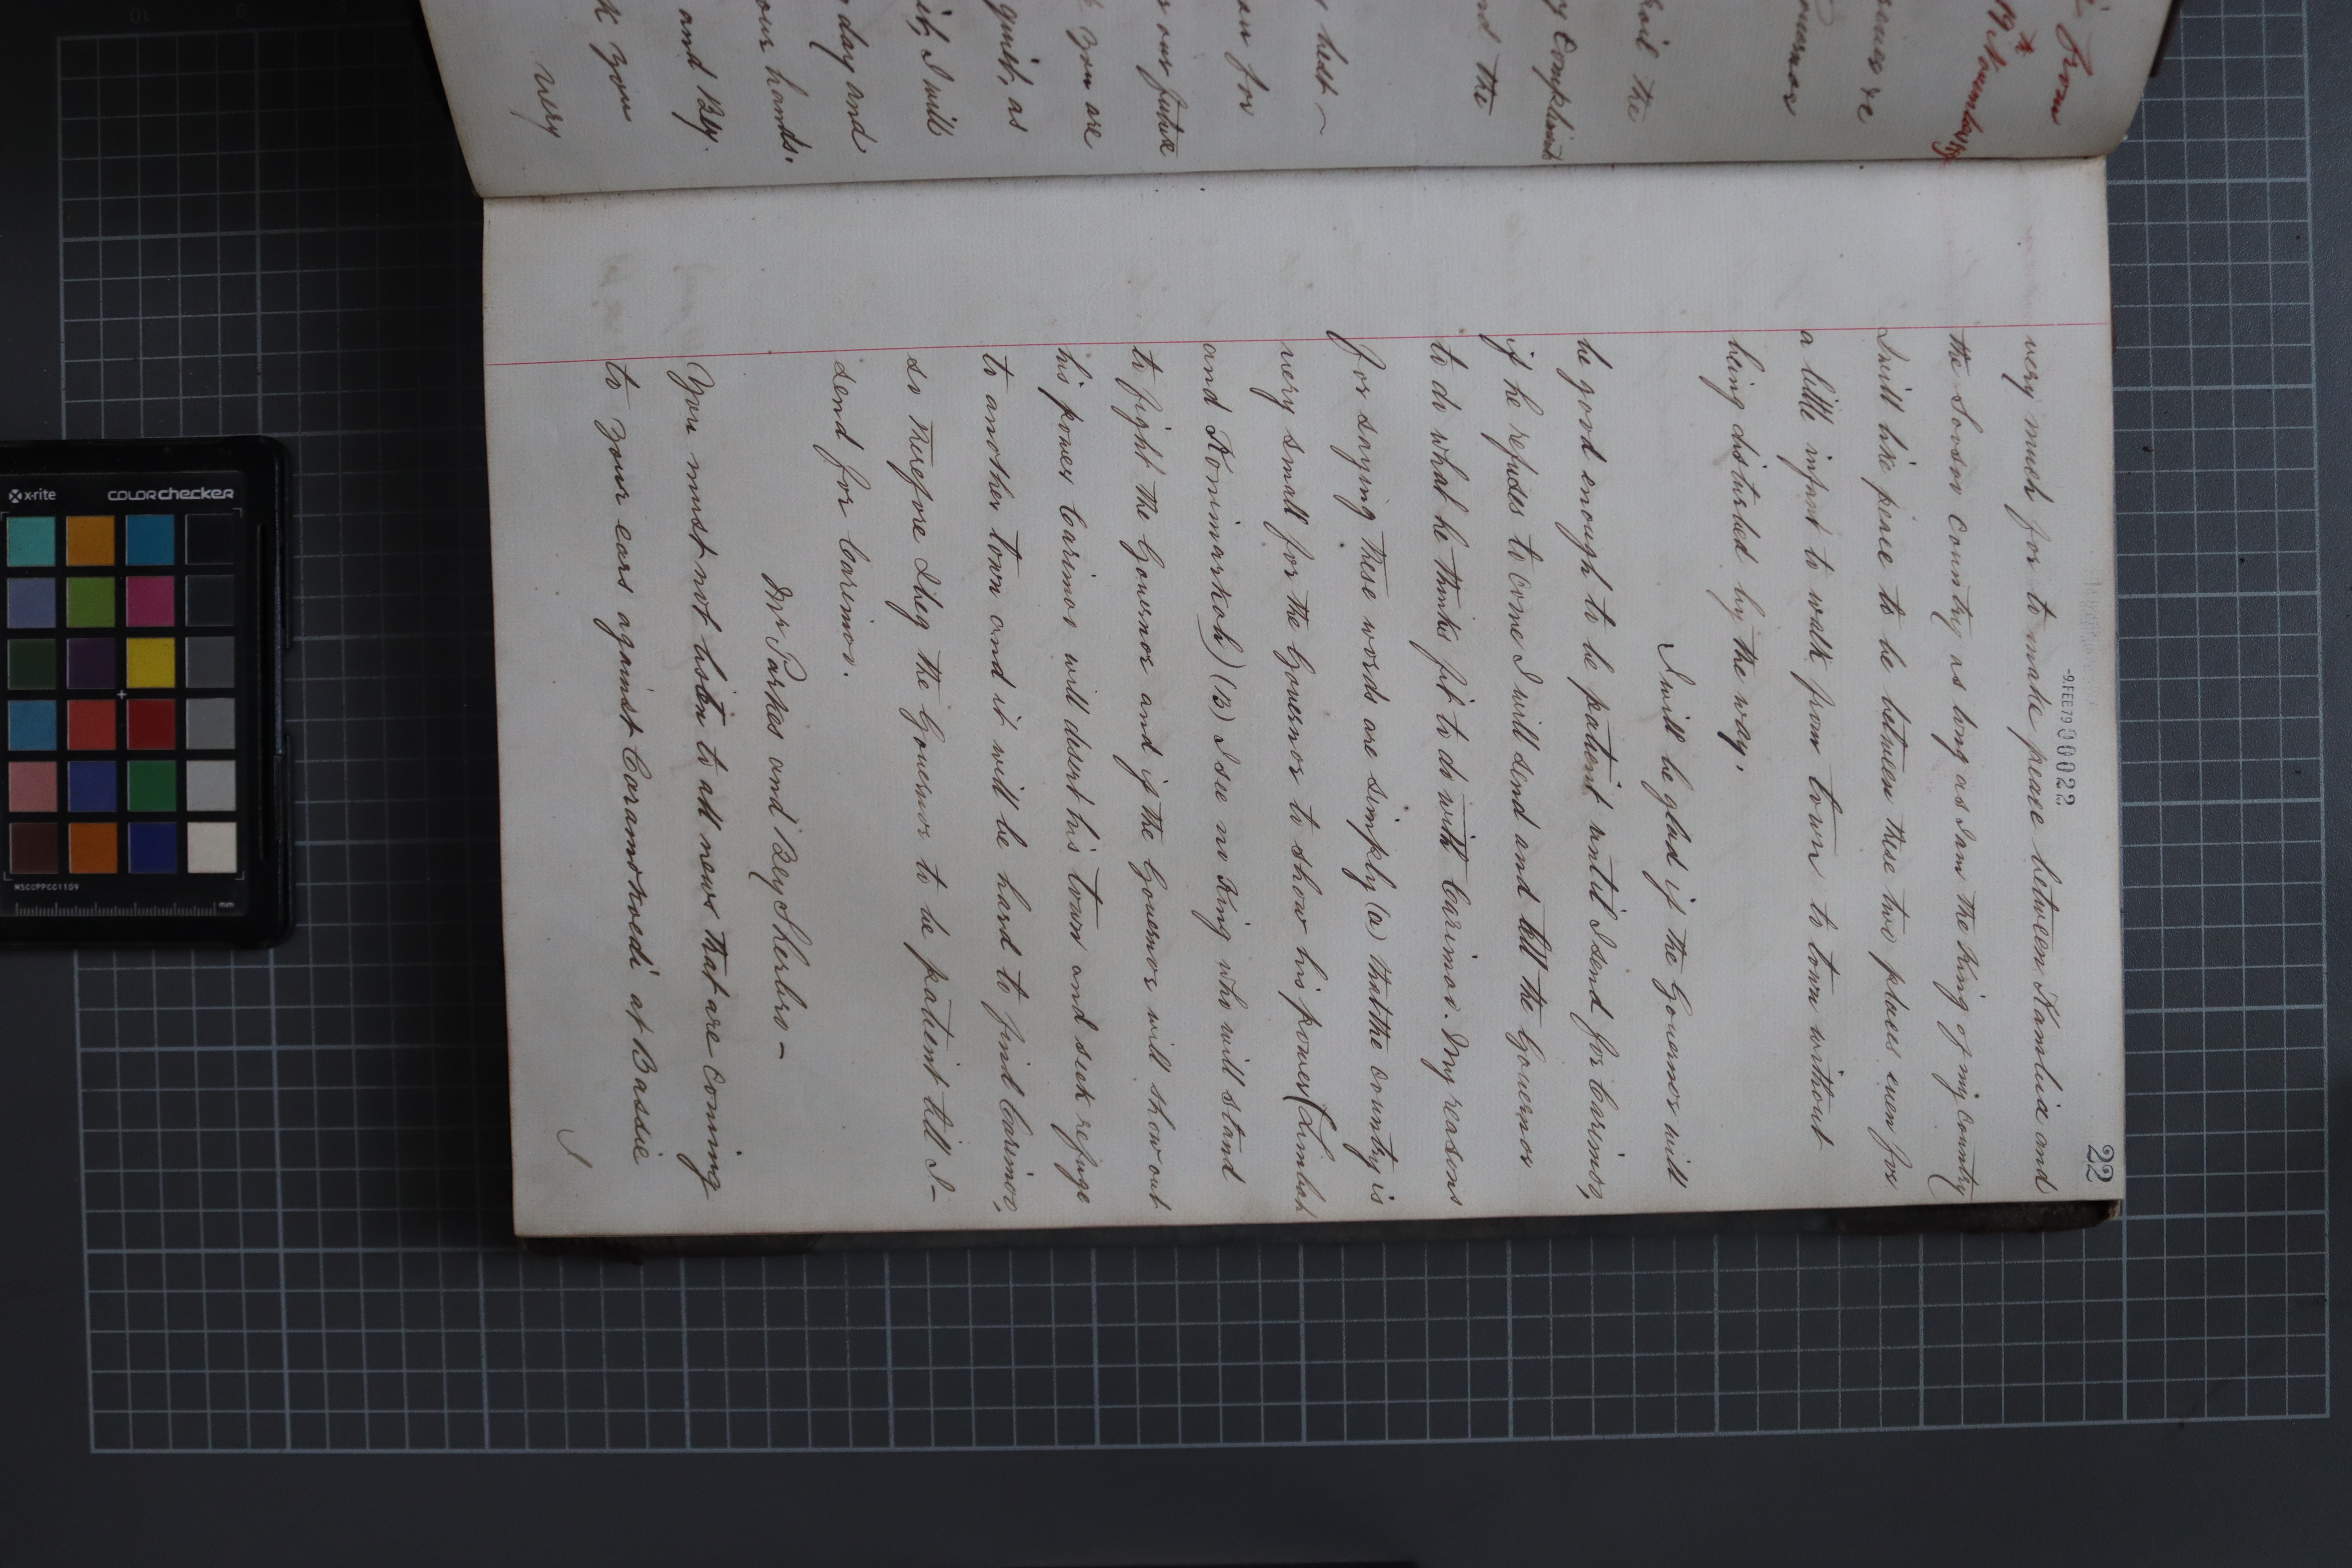 22
-9.FEB79 00022
very much for to make peace between Kambia and
the Soosoo Country as long as I am the King of my Country
I will like peace to be between these two places even for
a little infant to walk from town to town without
being disturbed by the way.
I will be glad if the Governor will
be good enough to be patient until I send for Carimoo,
if he refuses to come I will send and tell the Governor
to do what he thinks fit to do with Carimoo. My reasons
for saying these words are simply (a) that the country is
very small for the Governor to show his power (Limbah
and Konimarkoh) (B) I see no King who will stand
to fight the Governor and if the Governor will show out
his power Carimoo will desert his town and seek refuge
to another town and it will be hard to find Carimoo,
so therefore I beg the Governor to be patient till I -
send for Carimoo.
Mr Parkes and Bey Sherbro -
You must not listen to all news that are coming
to your ears against Caramokoedi at Bassie
from
re
the
Compliments
nd the
best -
for
our future
you are
quiet, as
it, I will
day and
our hands.
and Bey.
you
very
x-rite
COLORchecker
MSCCPPCC1109
mm